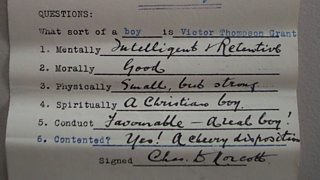 QUESTIONS:
What sort of a boy is Victor Thompson Grant
1. Mentally Intelligent & Retentive
2. Morally Good
3. Physically Small, but strong
4. Spiritually A Christian boy.
5. Conduct Favourable - A real boy!
6. Contented? Yes! A cheery disposition
Signed Chas. D